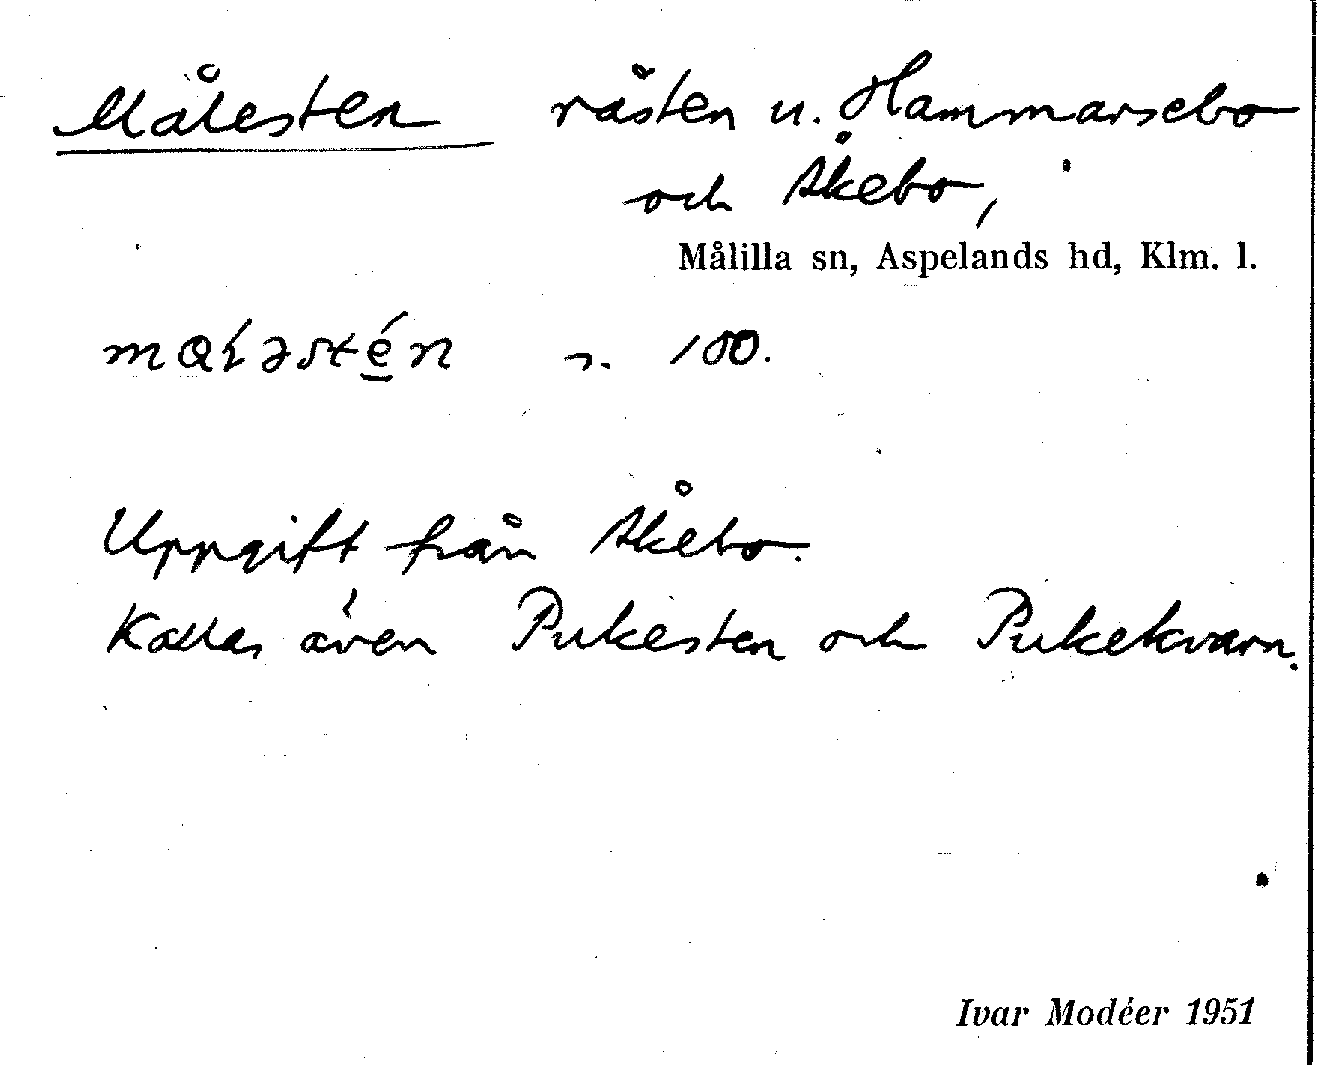 Målesten råsten u. Hammarsebo
och Åkebo,
Målilla sn, Aspelands hd, Klm. l.
n. 100.
Uppgift från Åkebo.
Kallas även Pukesten och Pukekvarn.
Ivar Modéer 1951